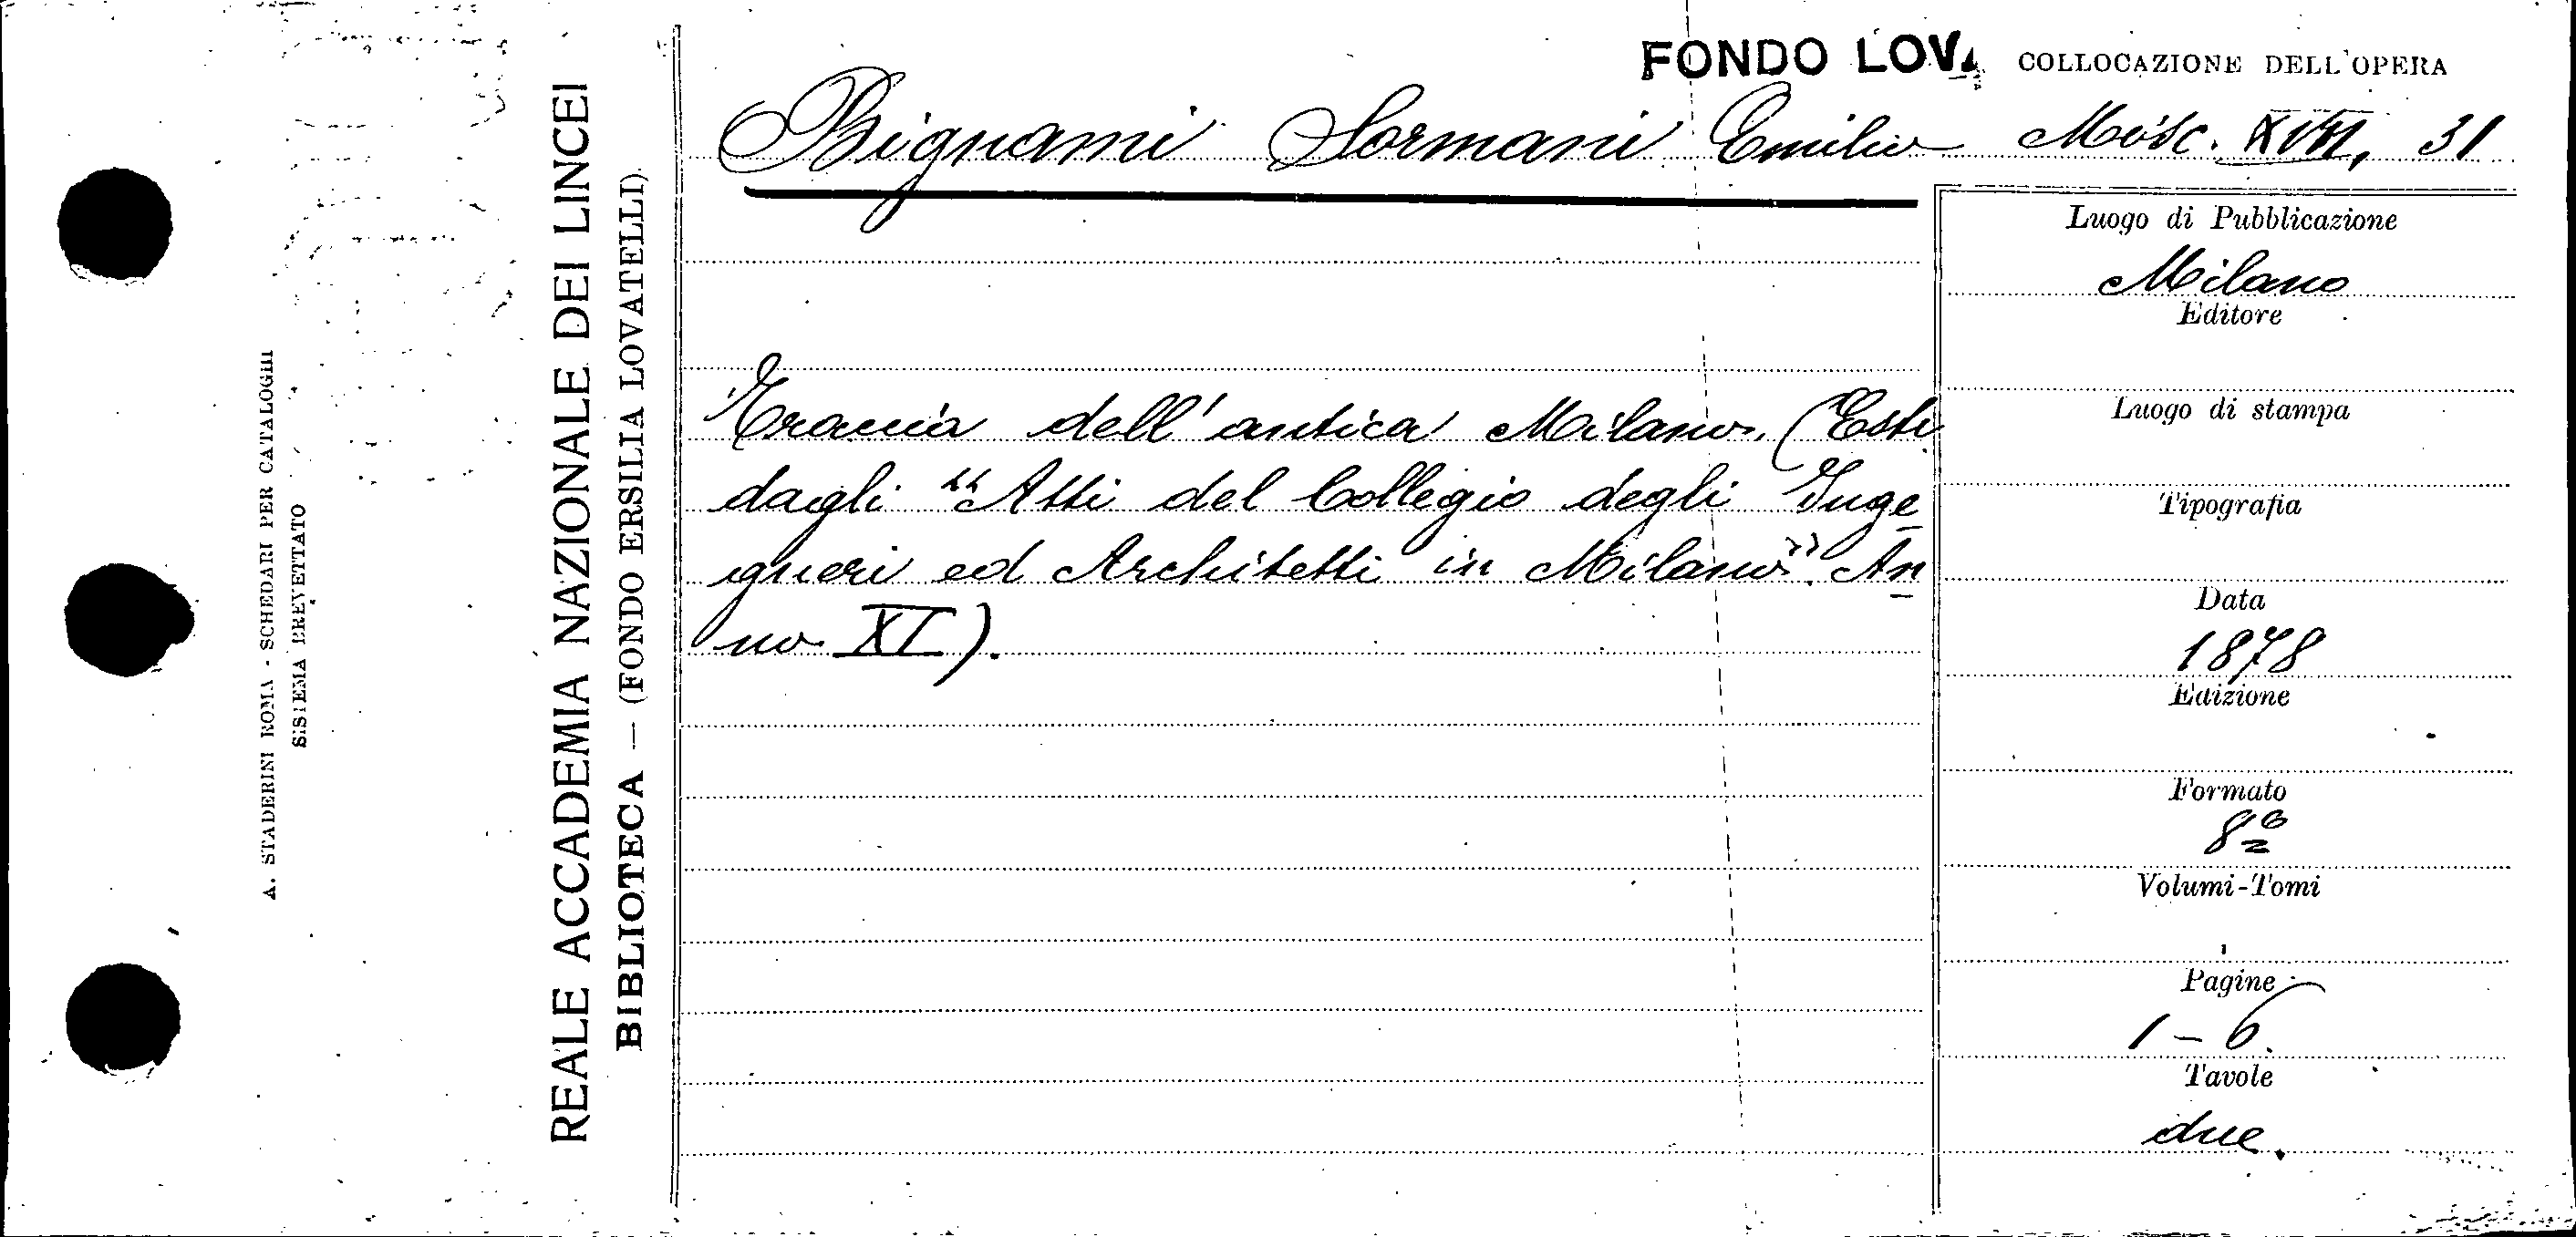 FONDO LOV.
COLLOCAZIONE DELL'OPERA
Bignami Sormani Emilio
Misc. XVII, 31
Luogo di Pubblicazione
Milano
Editore
Luogo di stampa
Tipografia
Data
1878
Edizione
Formato
8º
Volumi-Tomi
Pagine
1-6.
Tavole
due.
dell'antica Milano. (Estr.
dagli "Atti del Collegio degli Inge
gneri ed Architetti in Milano". An
no XI).
REALE ACCADEMIA NAZIONALE DEI LINCEI
BIBLIOTECA — (FONDO ERSILIA LOVATELLI)
A. STADERINI ROMA - SCHEDARI PER CATALOGHI
SISTEMA BREVETTATO